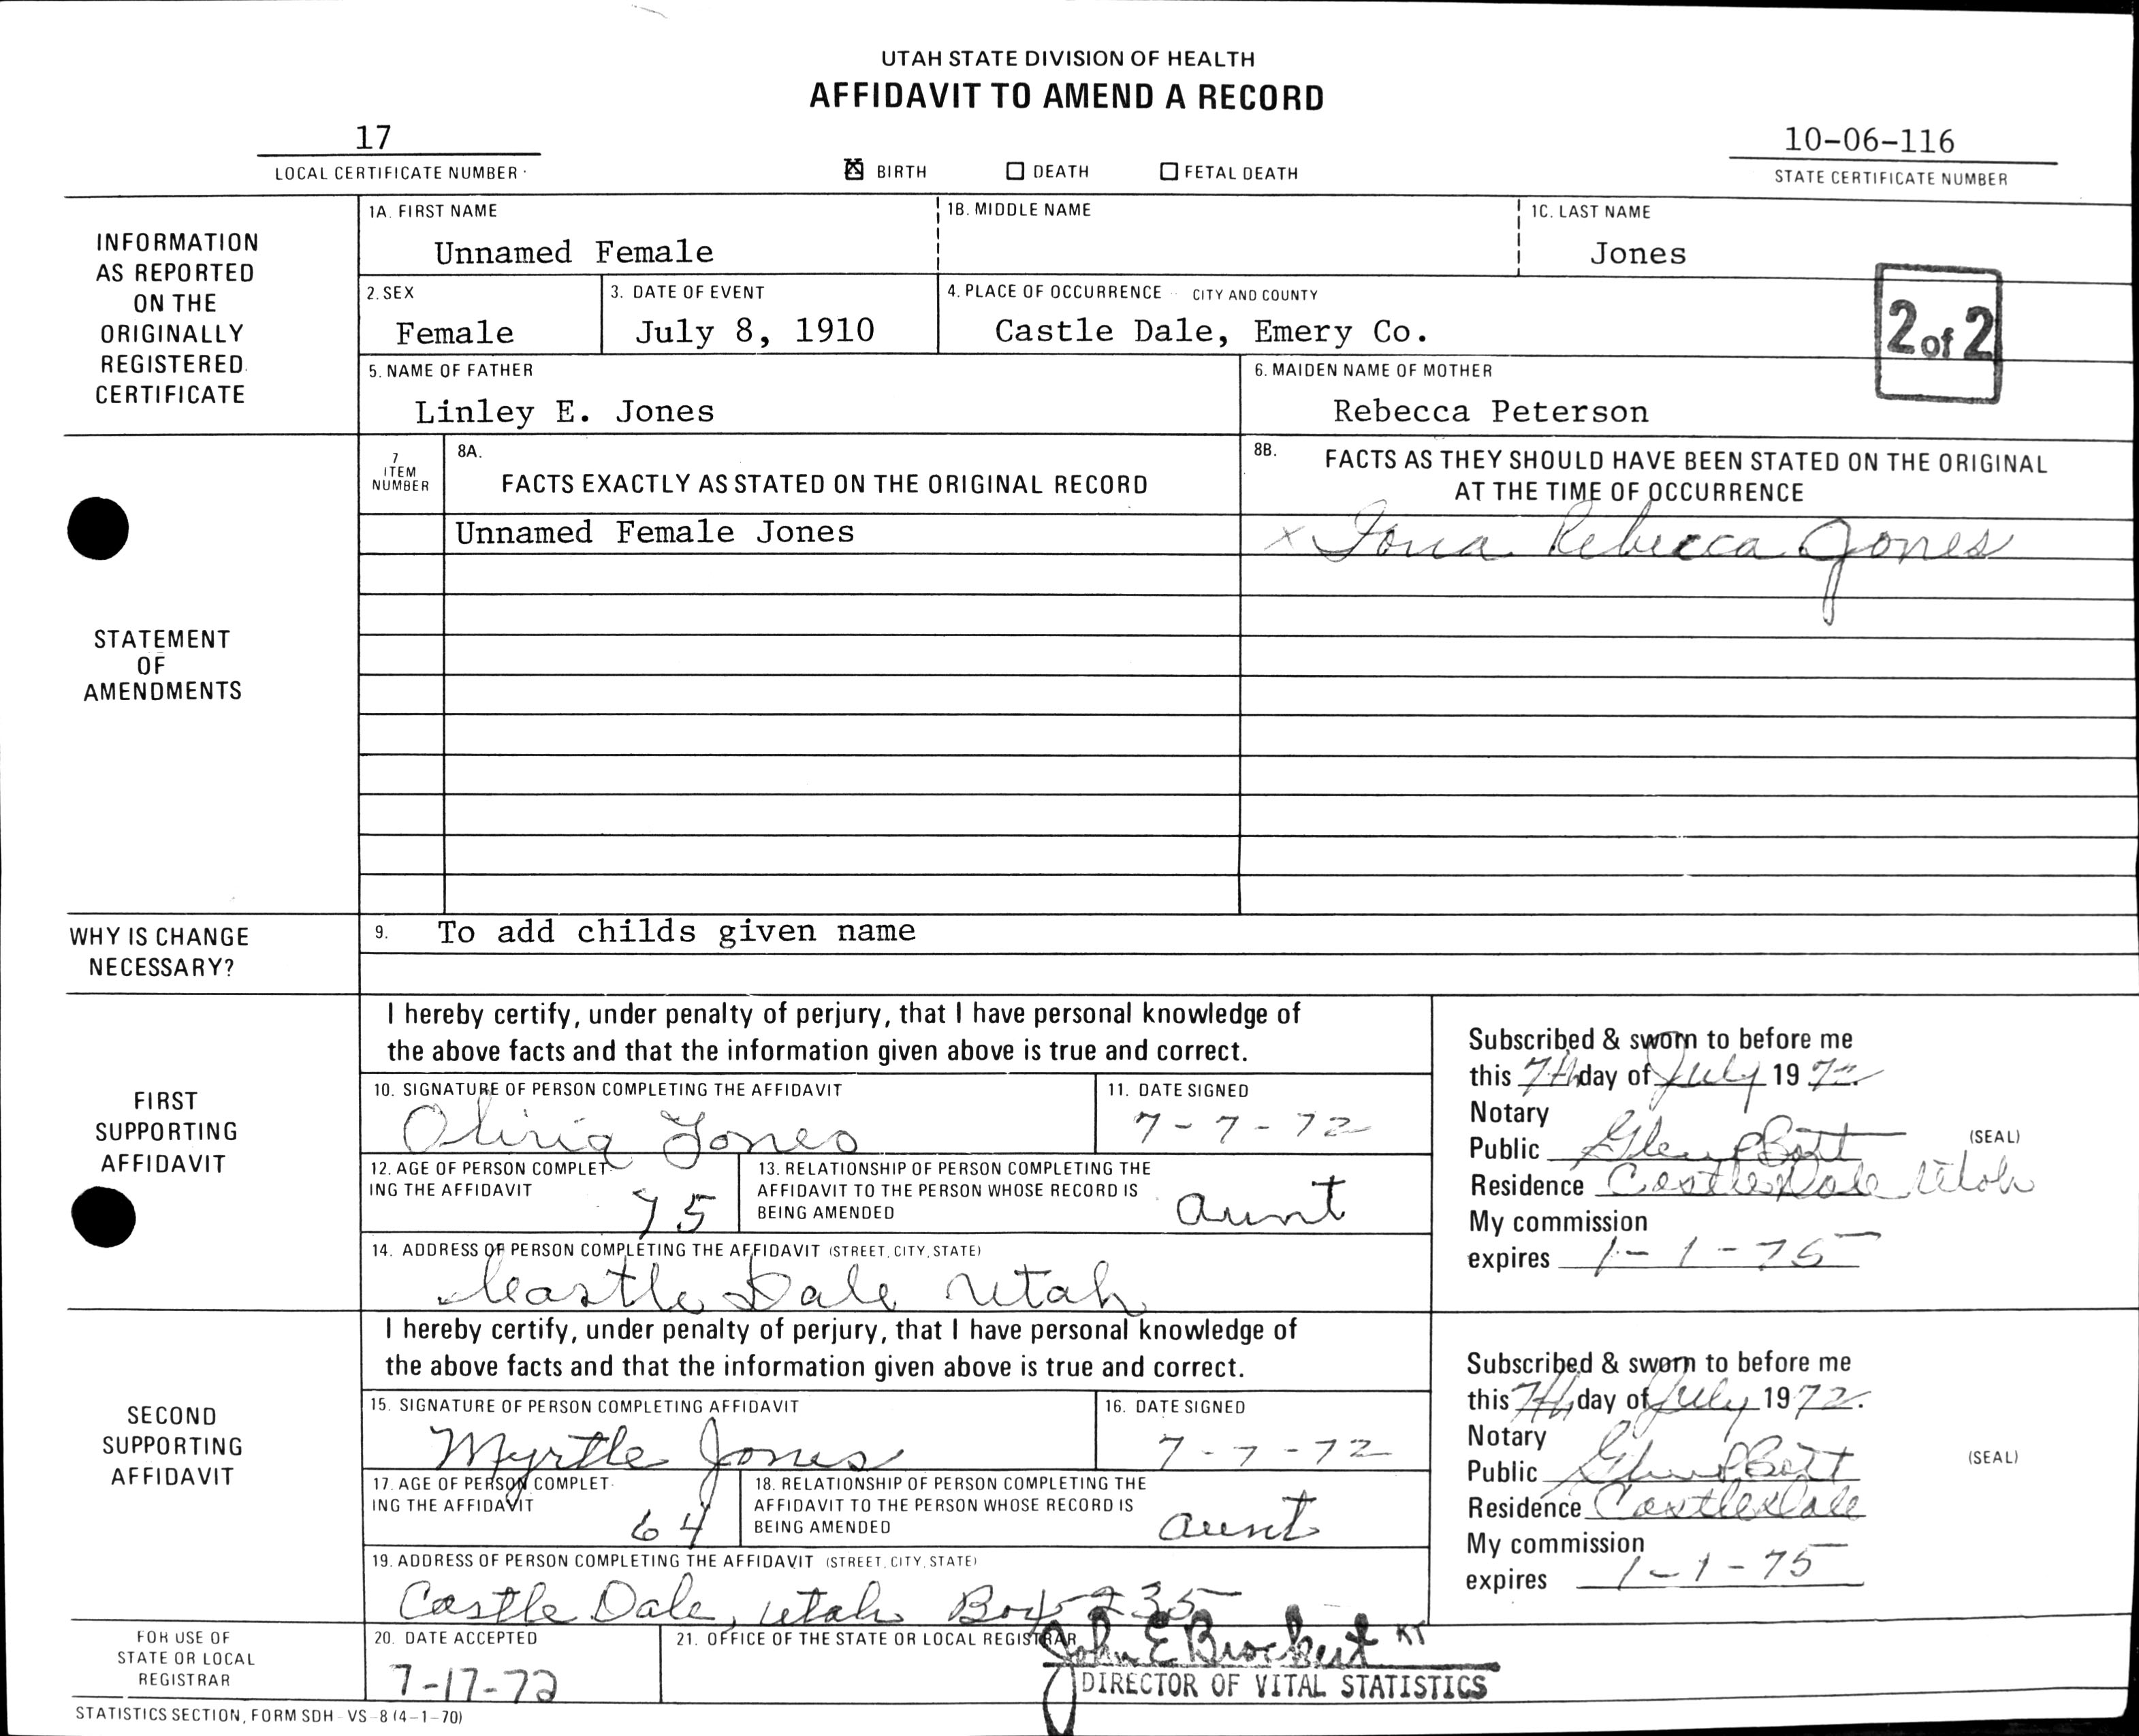 UTAH STATE DIVISION OF HEALTH
AFFIDAVIT TO AMEND A RECORD
17
LOCAL CERTIFICATE NUMBER
☒ BIRTH ☐ DEATH ☐ FETAL DEATH
10-06-116
STATE CERTIFICATE NUMBER
INFORMATION
AS REPORTED
ON THE
ORIGINALLY
REGISTERED
CERTIFICATE
1A. FIRST NAME 1B. MIDDLE NAME 1C. LAST NAME
Unnamed Female Jones
2. SEX 3. DATE OF EVENT 4. PLACE OF OCCURRENCE - CITY AND COUNTY
Female July 8, 1910 Castle Dale, Emery Co.
2 of 2
5. NAME OF FATHER 6. MAIDEN NAME OF MOTHER
Linley E. Jones Rebecca Peterson
STATEMENT
OF
AMENDMENTS
7
ITEM
NUMBER
8A.
FACTS EXACTLY AS STATED ON THE ORIGINAL RECORD
8B. FACTS AS THEY SHOULD HAVE BEEN STATED ON THE ORIGINAL
AT THE TIME OF OCCURRENCE
Unnamed Female Jones x Rebecca Jones
WHY IS CHANGE
NECESSARY?
9. To add childs given name
FIRST
SUPPORTING
AFFIDAVIT
I hereby certify, under penalty of perjury, that I have personal knowledge of
the above facts and that the information given above is true and correct.
10. SIGNATURE OF PERSON COMPLETING THE AFFIDAVIT 11. DATE SIGNED
Olivia Jones 7-7-72
12. AGE OF PERSON COMPLET-
ING THE AFFIDAVIT
75
13. RELATIONSHIP OF PERSON COMPLETING THE
AFFIDAVIT TO THE PERSON WHOSE RECORD IS
BEING AMENDED
aunt
14. ADDRESS OF PERSON COMPLETING THE AFFIDAVIT (STREET, CITY, STATE)
Castle Dale Utah
Subscribed & sworn to before me
this 7th day of July 1972
Notary
Public (SEAL)
Residence Castle Dale Utah
My commission
expires 1-1-75
SECOND
SUPPORTING
AFFIDAVIT
I hereby certify, under penalty of perjury, that I have personal knowledge of
the above facts and that the information given above is true and correct.
15. SIGNATURE OF PERSON COMPLETING AFFIDAVIT 16. DATE SIGNED
Myrtle Jones 7-7-72
17. AGE OF PERSON COMPLET-
ING THE AFFIDAVIT
64
18. RELATIONSHIP OF PERSON COMPLETING THE
AFFIDAVIT TO THE PERSON WHOSE RECORD IS
BEING AMENDED
aunt
19. ADDRESS OF PERSON COMPLETING THE AFFIDAVIT (STREET, CITY, STATE)
Castle Dale, Utah Box 235
Subscribed & sworn to before me
this 7th day of July 1972.
Notary
Public (SEAL)
Residence Castle Dale
My commission
expires 1-1-75
FOR USE OF
STATE OR LOCAL
REGISTRAR
20. DATE ACCEPTED
7-17-72
21. OFFICE OF THE STATE OR LOCAL REGISTRAR
John E Brockert KT
DIRECTOR OF VITAL STATISTICS
STATISTICS SECTION, FORM SDH - VS-8 (4-1-70)